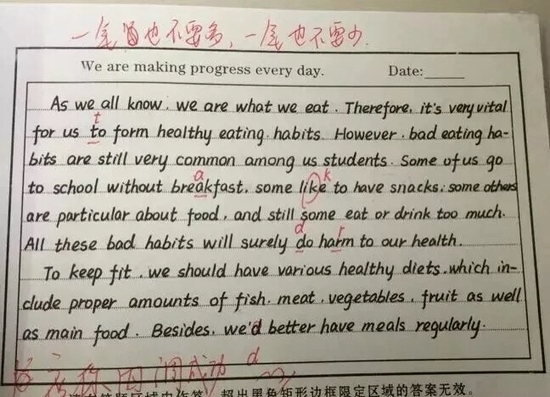 一笔画也不要多,一笔也不要少.
We are making progress every day. Date:
As we all know, we are what we eat. Therefore, it's very vital
t
for us to form healthy eating habits. However, bad eating ha-
bits are still very common among us students. Some of us go
a k
to school without breakfast, some like to have snacks; some others
are particular about food, and still some eat or drink too much.
d r
All these bad habits will surely do harm to our health.
To keep fit, we should have various healthy diets, which in-
clude proper amounts of fish, meat, vegetables, fruit as well
as main food. Besides, we'd better have meals regularly.
d
答题区域内作答,超出黑色矩形边框限定区域的答案无效。